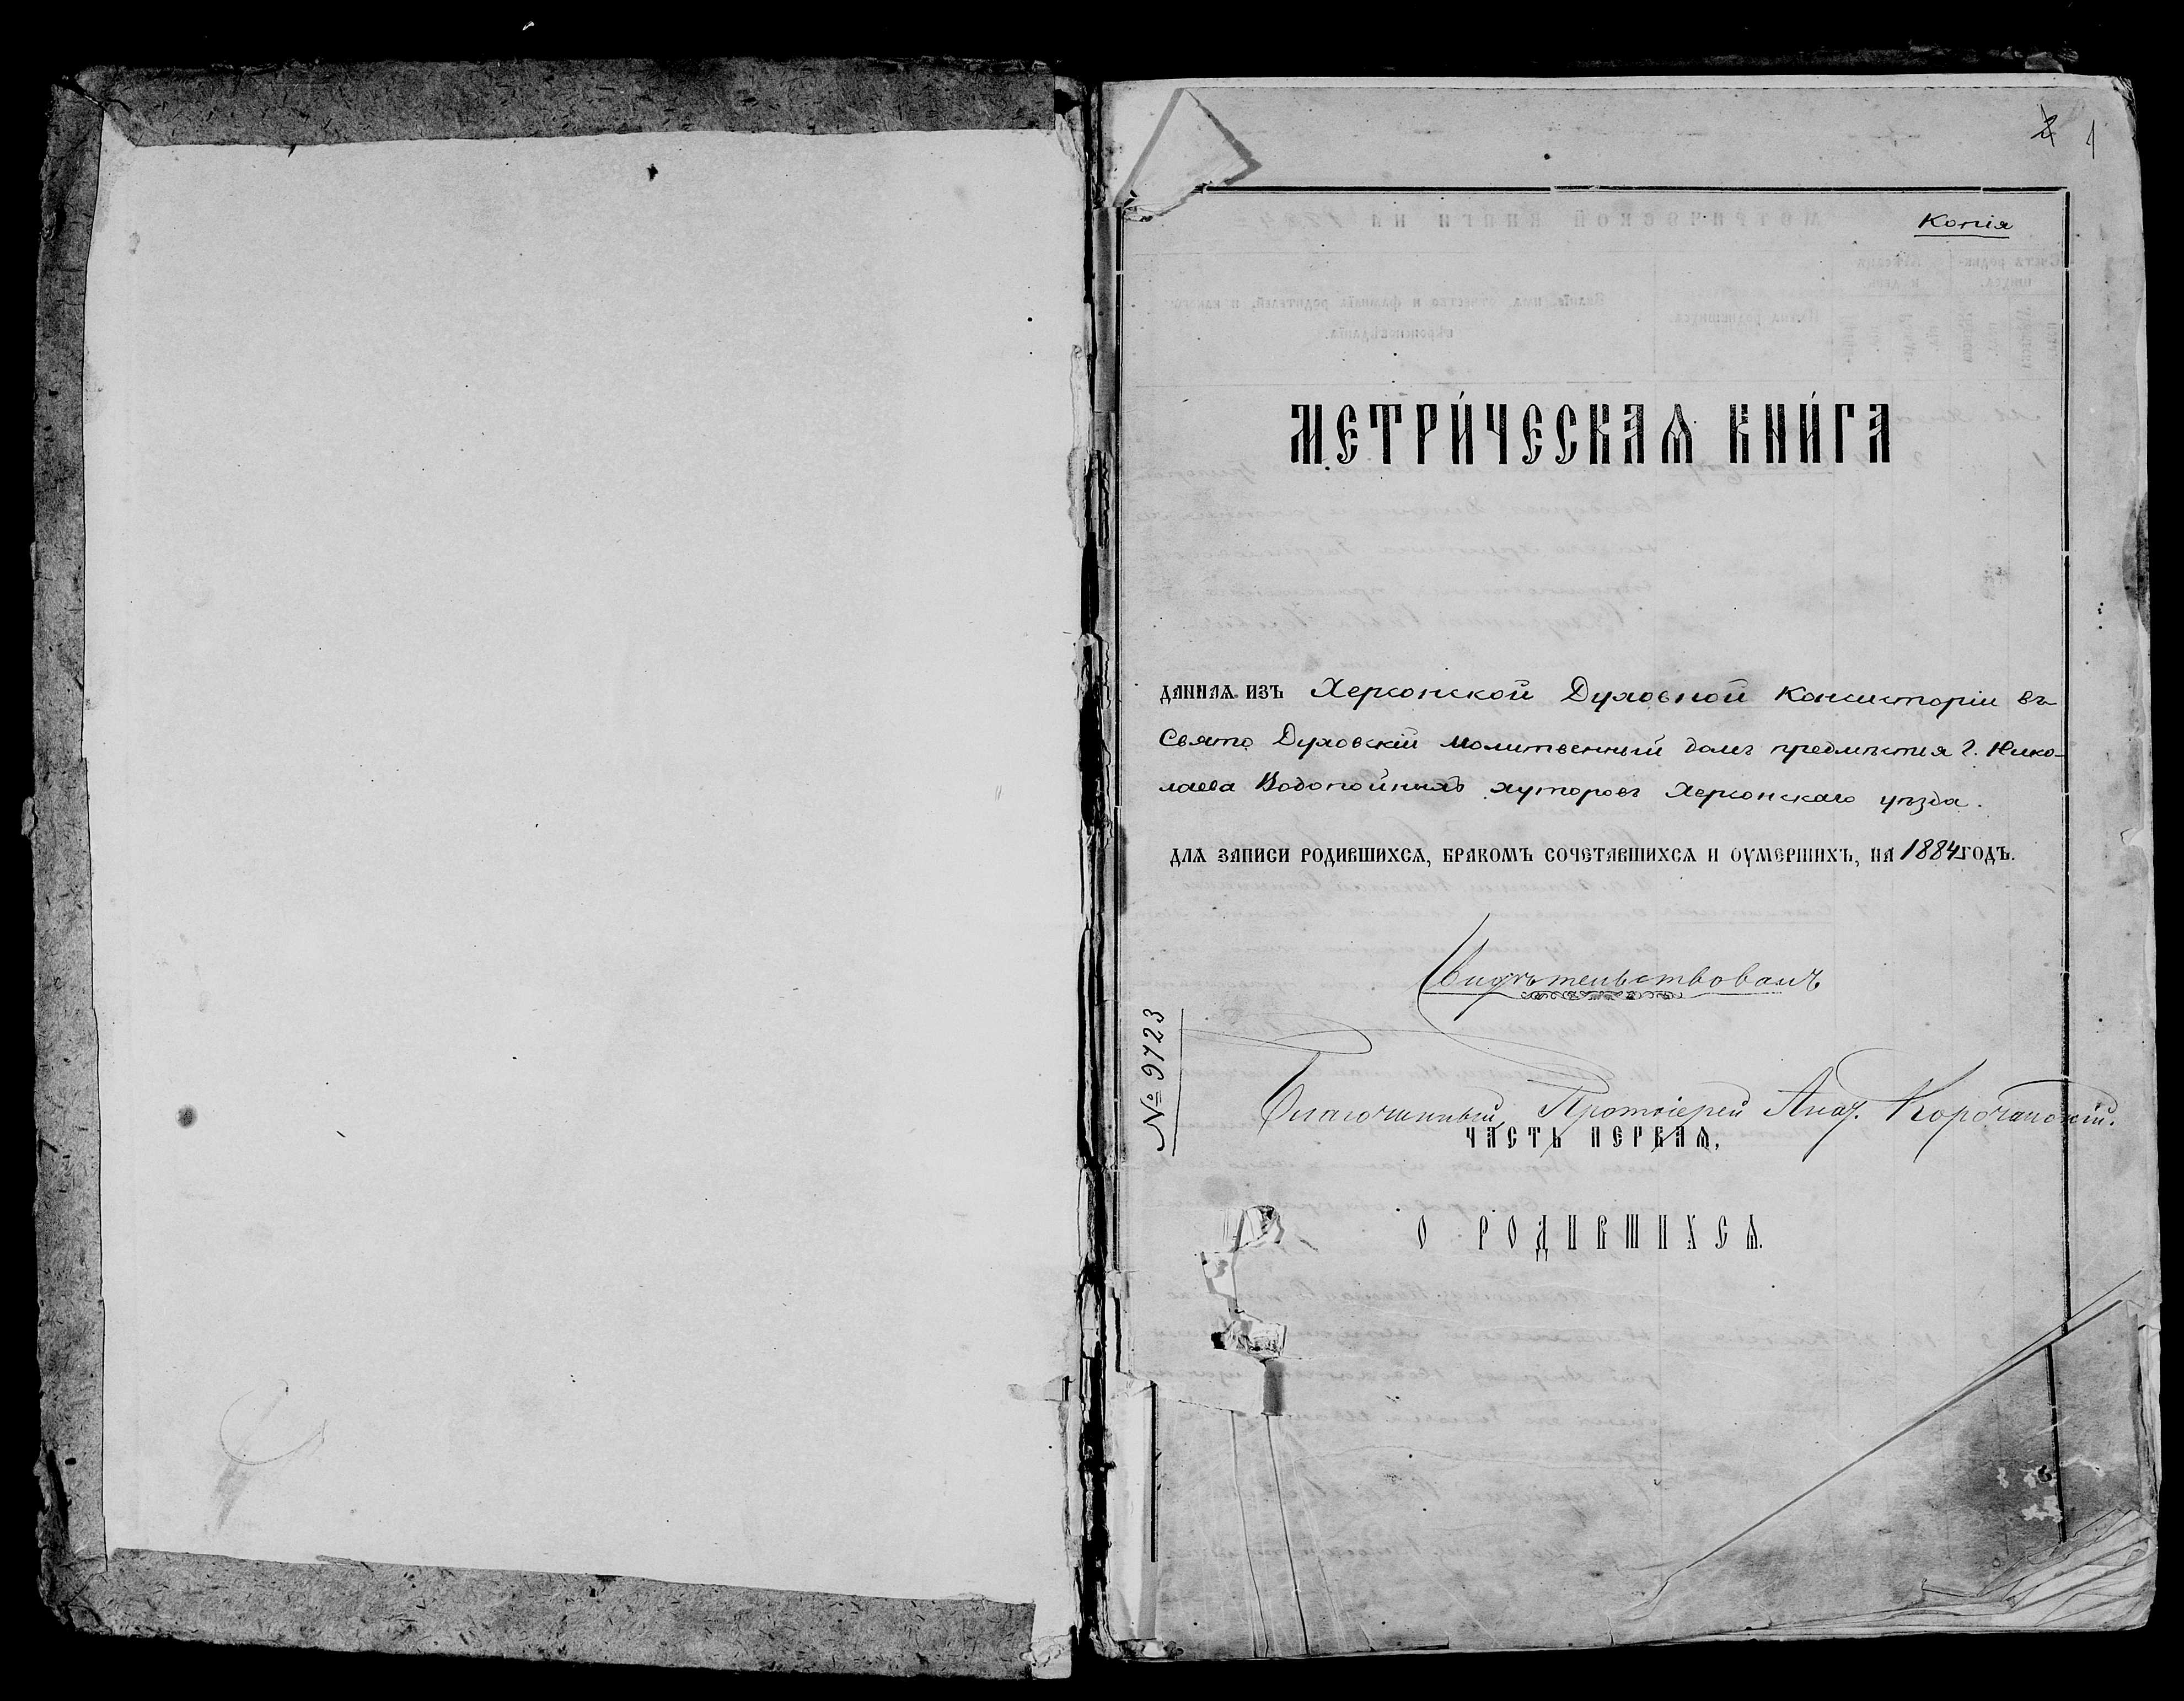 2 1
Копія
МЕТРИ́ЧЕСКАѦ КНИ́ГА
ДАННАѦ ИЗЪ Херсонской Духовной Консисторіи въ
Свято Духовскій молитвенный домъ предмѣстія г. Нико-
лаева Водопойныхъ хуторовъ Херсонскаго уѣзда.
ДЛѦ ЗАПИСИ РОДИВШИХСѦ, БРАКОМЪ СОЧЕТАВШИХСѦ И ОУМЕРШИХЪ, НА 1884 ГОДЪ.
Свидѣтельствовалъ
№ 9723
Благочинный, Протоіерей
ЧАСТЬ ПЕРВАѦ,
О РОДИВШИХСѦ.